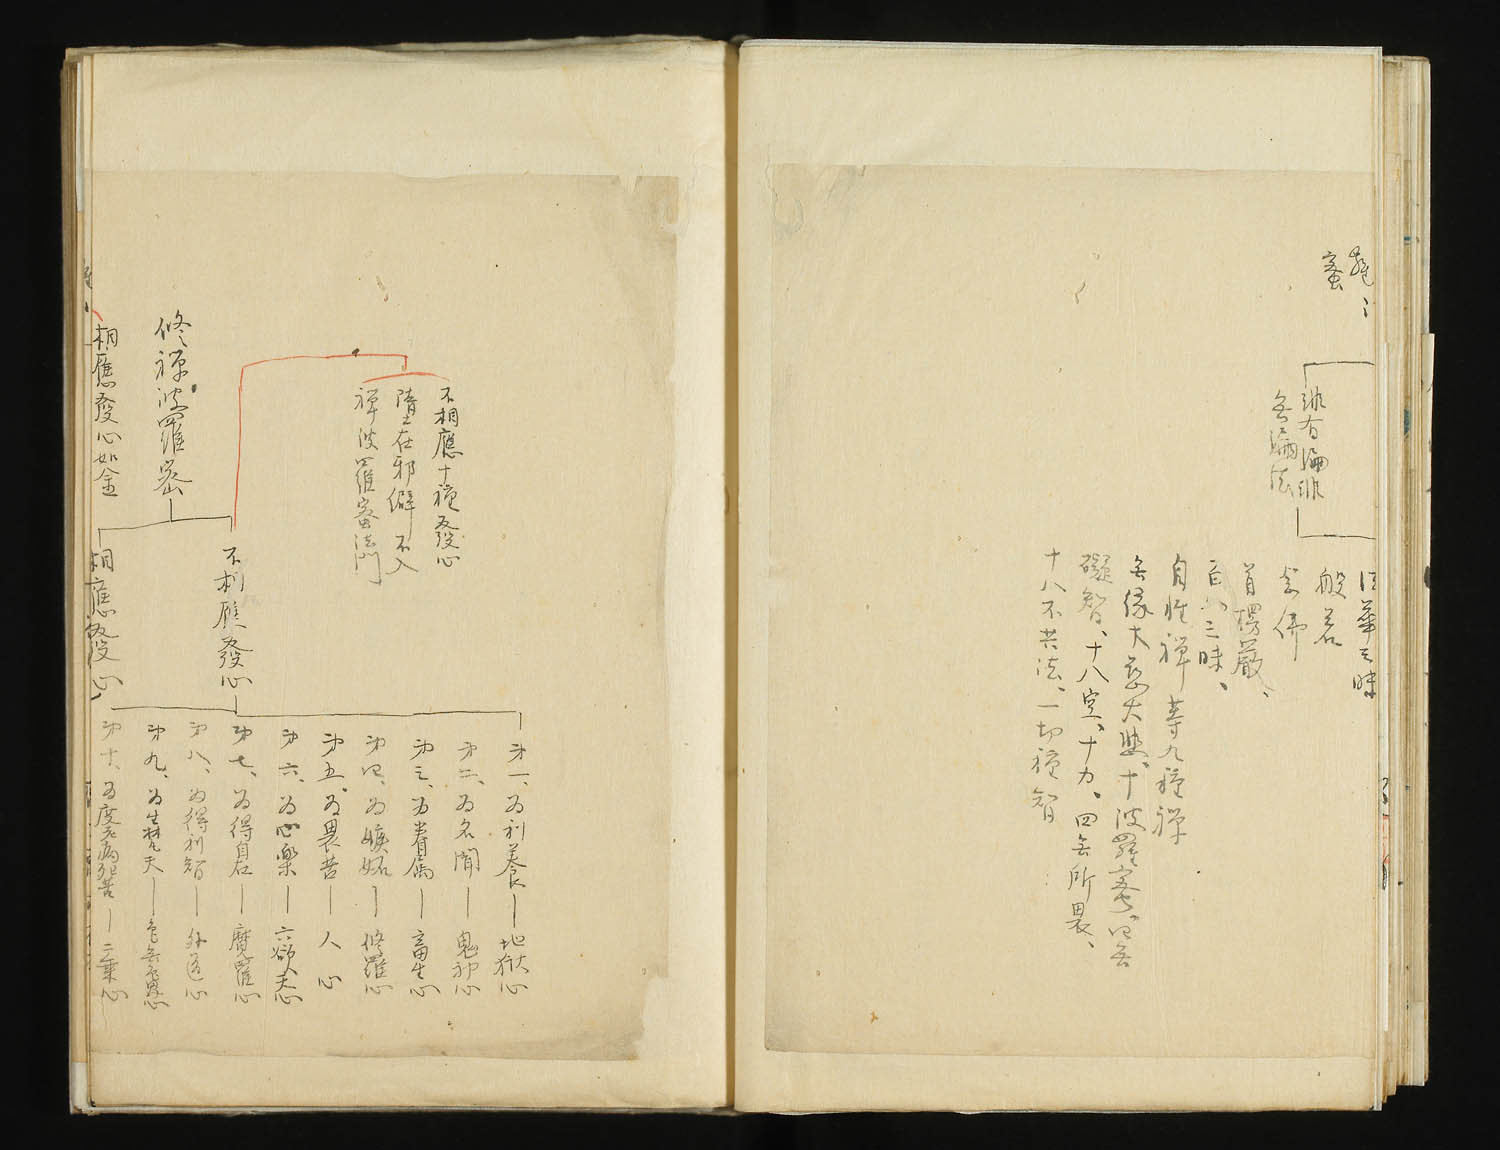 蜜
非有漏非
無漏法
法華三昧
般若
念佛
首楞嚴、
百八三昧、
自性禪等九種禪
無緣大慈大悲、十波羅蜜、四無
礙智、十八空、十力、四無所畏、
十八不共法、一切種智
不相應十種發心
墮在邪僻不入
禅波羅蜜法門
修禅波羅蜜
相應發心如金
不相應發心
相應發心
第一、为利養—地獄心
第二、为名聞—鬼神心
第三、为眷属—畜生心
第四、为嫉妬—修羅心
第五、为畏苦—人心
第六、为心樂—六欲天心
第七、为得自在—魔羅心
第八、为得利智—外道心
第九、为生梵天—色無色界心
第十、为度老病死苦—二乗心